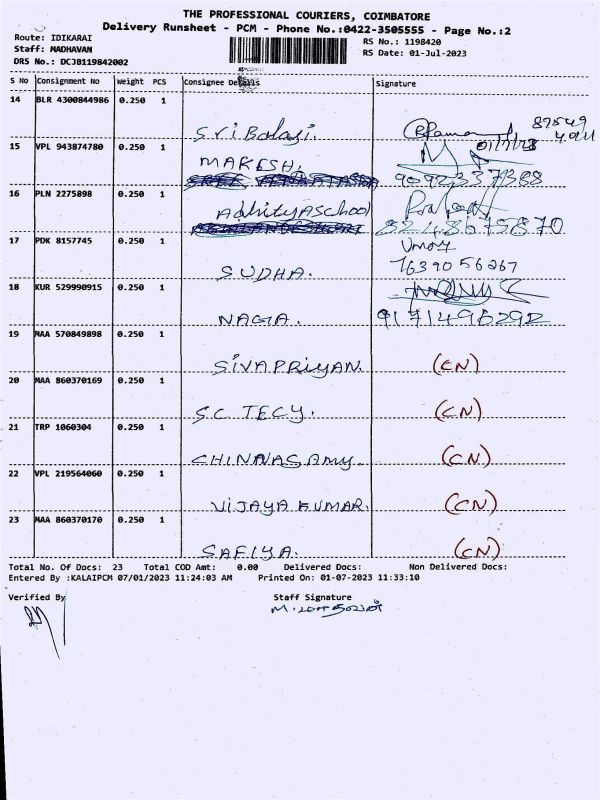 THE PROFESSIONAL COURIERS, COIMBATORE
Delivery Runsheet - PCM - Phone No.:0422-3505555 - Page No.:2
Route: IDIKARAI
RS No.: 1198420
Staff: MADHAVAN
RS Date: 01-Jul-2023
DRS No.: DCJB119842002
S No Consignment No Weight PCS Consignee Details Signature
14 BLR 4300844986 0.250 1 Sri Balaji.
15 VPL 943874780 0.250 1 MAKESH. 01/7/23
9092337388
16 PLN 2275898 0.250 1 Adhitya School
8248675870
17 PDK 8157745 0.250 1 SUDHA.
7639056267
18 KUR 529990915 0.250 1 NAGA. 9171496292
19 MAA 570849898 0.250 1 SIVAPRIYAN. (CN)
20 MAA 860370169 0.250 1 S.C TECY. (CN)
21 TRP 1060304 0.250 1 CHINNASAMY (CN)
22 VPL 219564060 0.250 1 VIJAYA KUMAR. (CN)
23 MAA 860370170 0.250 1 SAFIYA. (CN)
Total No. Of Docs: 23 Total COD Amt: 0.00 Delivered Docs: Non Delivered Docs:
Entered By :KALAIPCM 07/01/2023 11:24:03 AM Printed On: 01-07-2023 11:33:10
Verified By Staff Signature